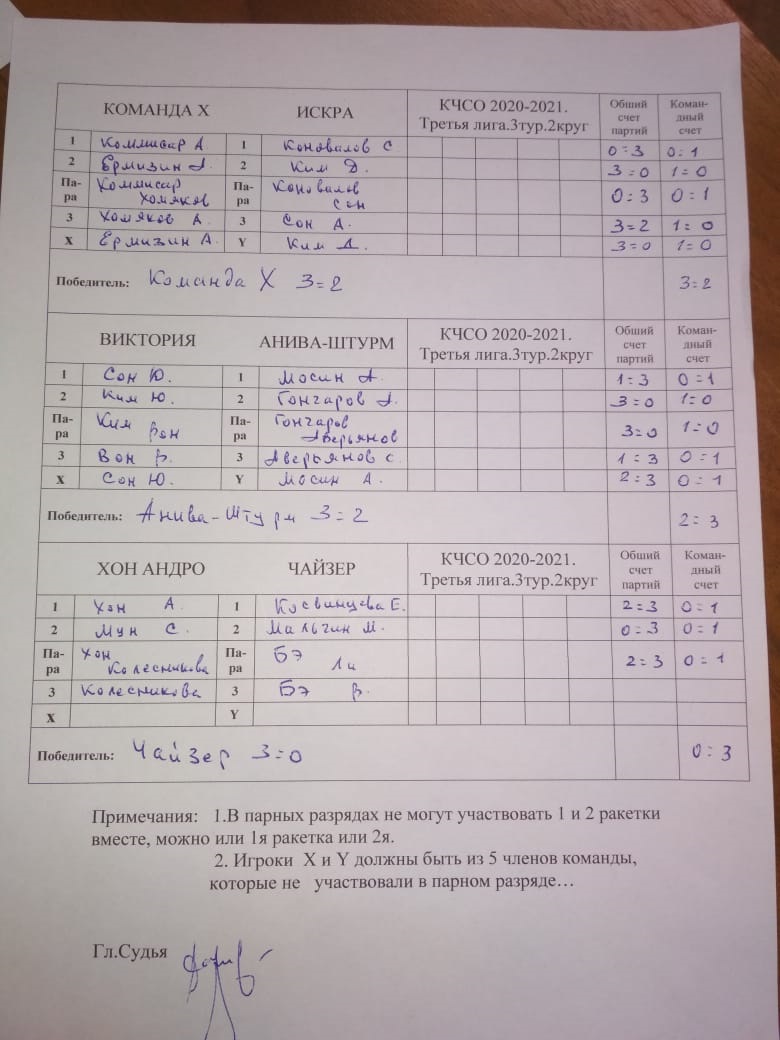 КОМАНДА Х ИСКРА КЧСО 2020-2021. Третья лига.3тур.2круг Общий счет партий Коман-дный счет
1 Коммисар А 1 Коновалов С 0=3 0=1
2 Ермизин А. 2 Ким Д. 3=0 1=0
Па-ра Коммисар Хомяков Па-ра Коновалов Сон 0=3 0=1
3 Хомяков А. 3 Сон А. 3=2 1=0
Х Ермизин А. Y Ким Д. 3=0 1=0
Победитель: Команда Х 3=2 3=2
ВИКТОРИЯ АНИВА-ШТУРМ КЧСО 2020-2021. Третья лига.3тур.2круг Общий счет партий Коман-дный счет
1 Сон Ю. 1 Мосин А. 1=3 0=1
2 Ким Ю. 2 Гончаров А. 3=0 1=0
Па-ра Ким Вон Па-ра Гончаров Аверьянов 3=0 1=0
3 Вон В. 3 Аверьянов С. 1=3 0=1
Х Сон Ю. Y Мосин А. 2=3 0=1
Победитель: Анива-Штурм 3=2 2=3
ХОН АНДРО ЧАЙЗЕР КЧСО 2020-2021. Третья лига.3тур.2круг Общий счет партий Коман-дный счет
1 Хон А. 1 Косвинцева Е. 2=3 0=1
2 Мун С. 2 Мальгин М. 0=3 0=1
Па-ра Хон Колесникова Па-ра Бэ Ли 2=3 0=1
3 Колесникова 3 Бэ В.
Х Y
Победитель: Чайзер 3=0 0=3
Примечания: 1.В парных разрядах не могут участвовать 1 и 2 ракетки
вместе, можно или 1я ракетка или 2я.
2. Игроки Х и Y должны быть из 5 членов команды,
которые не участвовали в парном разряде…
Гл.Судья